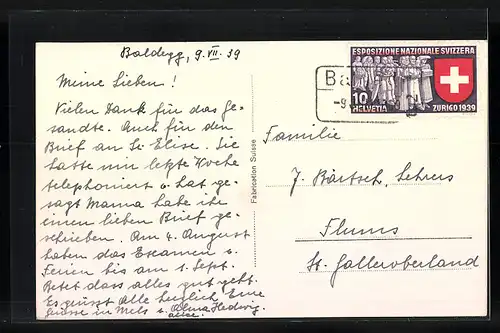 Baldegg, 9. VII. 39
Meine Lieben!
Vielen Dank für das Ge-
sandte. Auch für den
Brief an Sr Elise. Sie
hatte mir letzte Woche
telephoniert u. hat ge-
sagt Mama habe ihr
einen lieben Brief ge-
schrieben. Am 4. August
haben das Examen u.
Ferien bis am 1. Sept.
Betet dass alles gut geht.
Es grüsst alle herzlich Eure
Grüsse in Mels u. Alma Hedwig.
Fabrication Suisse
ESPOSIZIONE NAZIONALE SVIZZERA
10
HELVETIA
ZURIGO 1939
Ba
-9.
Familie
J. Bärtsch, Lehrers
Flums
St. Galleroberland